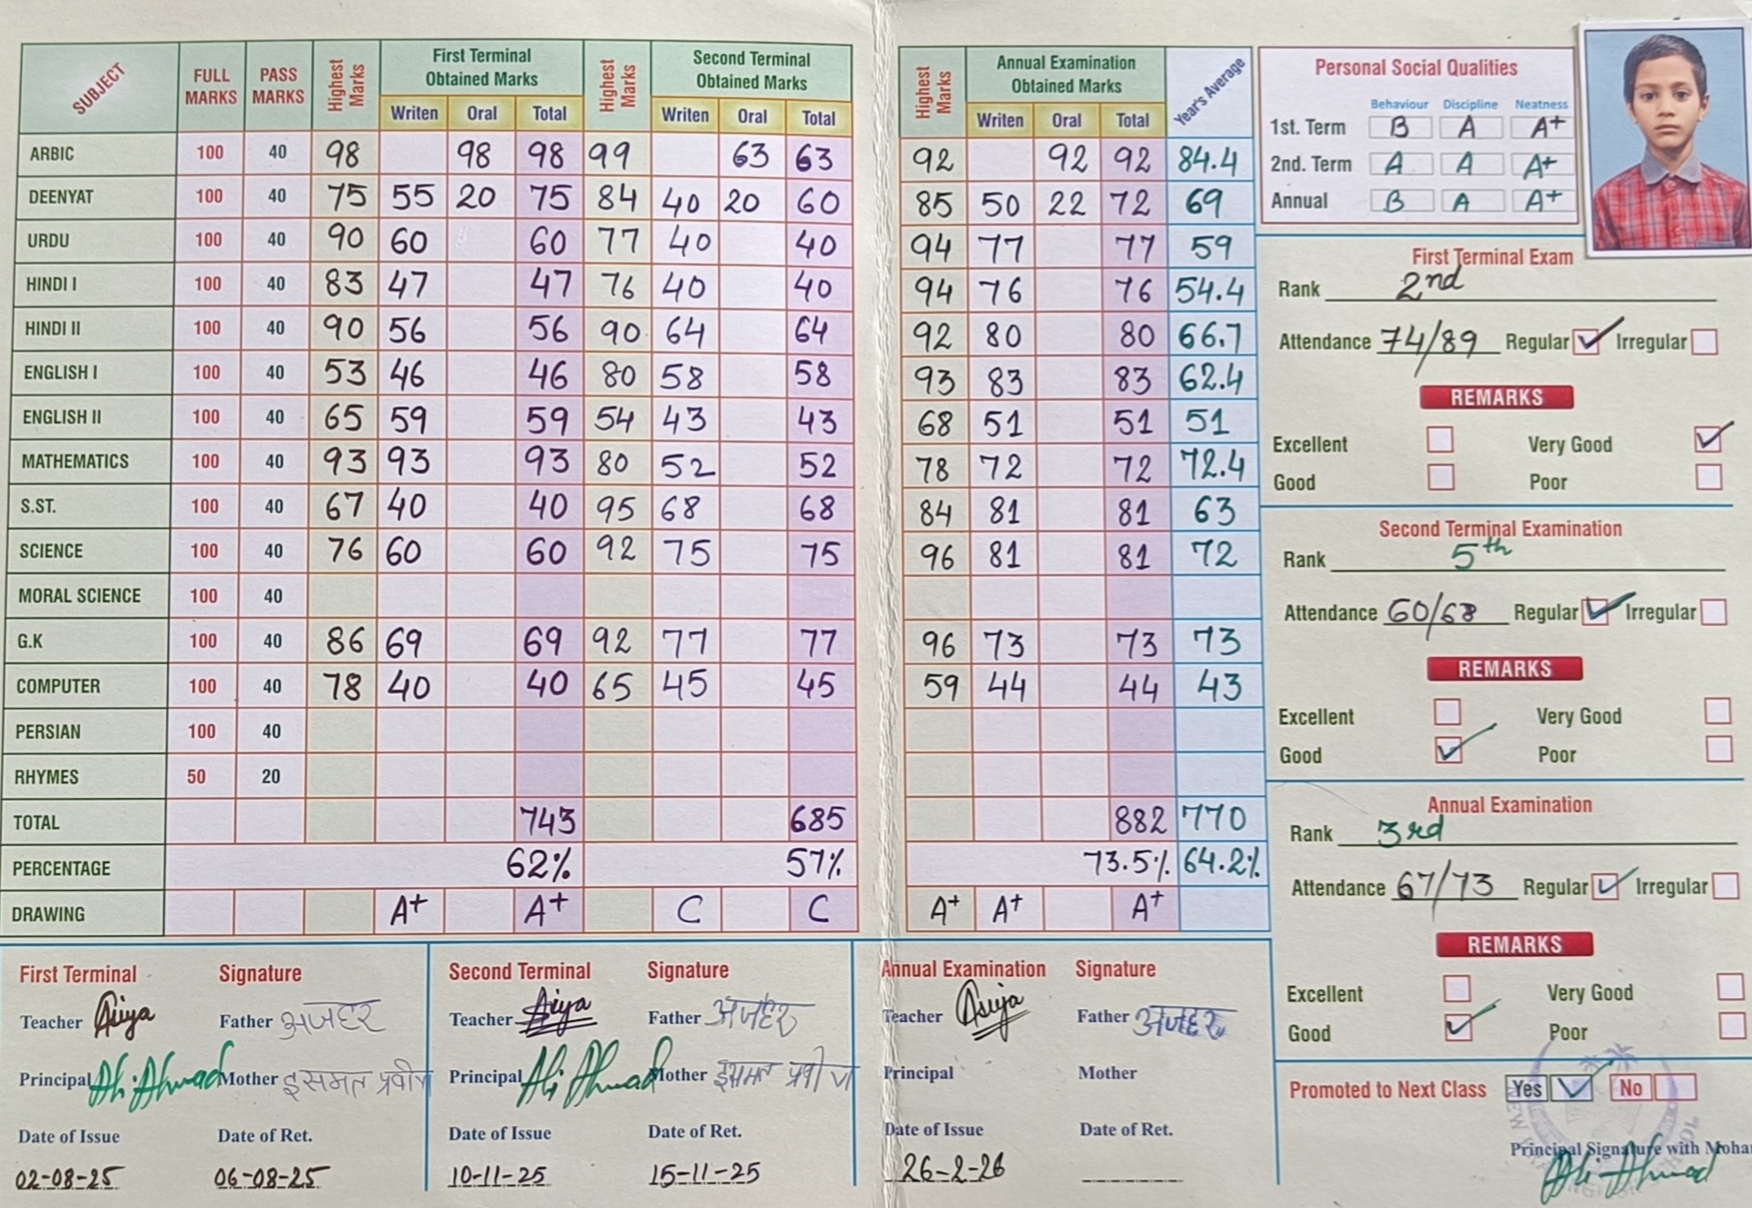 SUBJECT FULL MARKS PASS MARKS Highest Marks First Terminal Obtained Marks Highest Marks Second Terminal Obtained Marks Highest Marks Annual Examination Obtained Marks Year's Average
Writen Oral Total Writen Oral Total Writen Oral Total
ARBIC 100 40 98 98 98 99 63 63 92 92 92 84.4
DEENYAT 100 40 75 55 20 75 84 40 20 60 85 50 22 72 69
URDU 100 40 90 60 60 77 40 40 94 77 77 59
HINDI I 100 40 83 47 47 76 40 40 94 76 76 54.4
HINDI II 100 40 90 56 56 90 64 64 92 80 80 66.7
ENGLISH I 100 40 53 46 46 80 58 58 93 83 83 62.4
ENGLISH II 100 40 65 59 59 54 43 43 68 51 51 51
MATHEMATICS 100 40 93 93 93 80 52 52 78 72 72 72.4
S.ST. 100 40 67 40 40 95 68 68 84 81 81 63
SCIENCE 100 40 76 60 60 92 75 75 96 81 81 72
MORAL SCIENCE 100 40
G.K 100 40 86 69 69 92 77 77 96 73 73 73
COMPUTER 100 40 78 40 40 65 45 45 59 44 44 43
PERSIAN 100 40
RHYMES 50 20
TOTAL 743 685 882 770
PERCENTAGE 62% 57% 73.5% 64.2%
DRAWING A+ A+ C C A+ A+ A+
Personal Social Qualities
Behaviour Discipline Neatness
1st. Term B A A+
2nd. Term A A A+
Annual B A A+
First Terminal Exam
Rank 2nd
Attendance 74/89 Regular Irregular
REMARKS
Excellent Very Good
Good Poor
Second Terminal Examination
Rank 5th
Attendance 60/68 Regular Irregular
REMARKS
Excellent Very Good
Good Poor
Annual Examination
Rank 3rd
Attendance 67/73 Regular Irregular
REMARKS
Excellent Very Good
Good Poor
Promoted to Next Class Yes No
Principal Signature with Moha
Ali Ahmad
First Terminal Signature
Teacher Asiya Father अजहर
Principal Ali Ahmad Mother इसमत प्रवीण
Date of Issue Date of Ret.
02-08-25 06-08-25
Second Terminal Signature
Teacher Asiya Father अजहर
Principal Ali Ahmad Mother इसमत प्रवीण
Date of Issue Date of Ret.
10-11-25 15-11-25
Annual Examination Signature
Teacher Asiya Father अजहर
Principal Mother
Date of Issue Date of Ret.
26-2-26